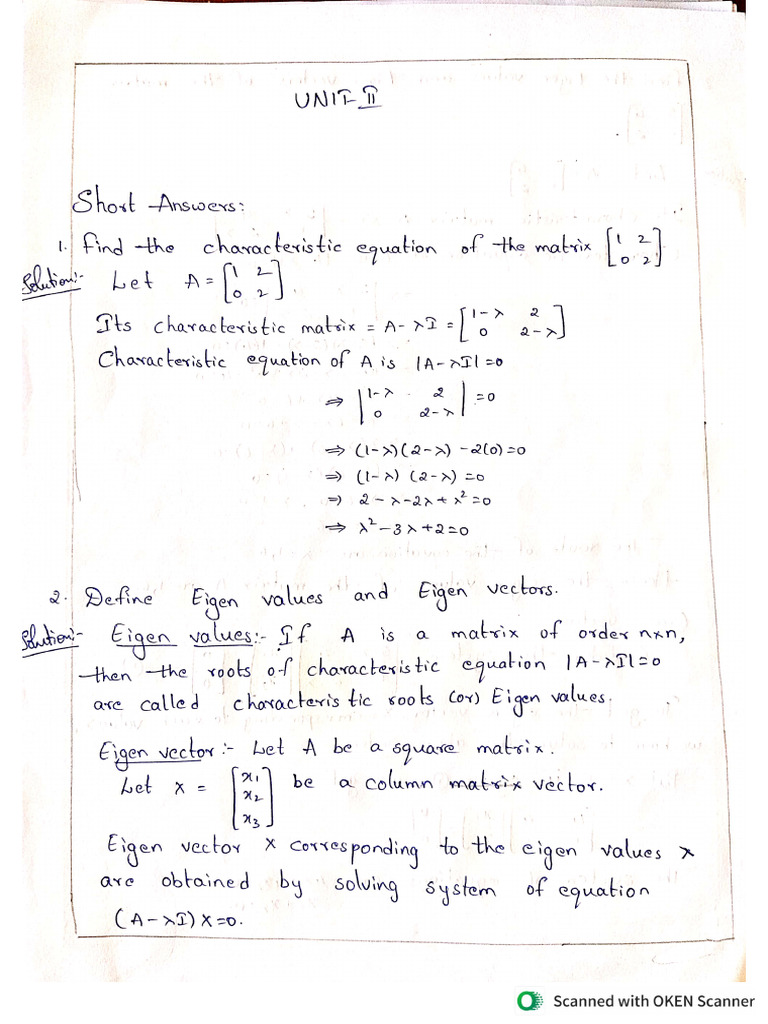 UNIT-II
Short Answers:
1. Find the characteristic equation of the matrix [1 2
0 2]
Solution:- Let A = [1 2
0 2].
Its characteristic matrix = A-λI = [1-λ 2
0 2-λ]
Characteristic equation of A is |A-λI|=0
⇒ |1-λ 2
0 2-λ| =0
⇒ (1-λ)(2-λ) -2(0)=0
⇒ (1-λ) (2-λ) =0
⇒ 2-λ-2λ+λ²=0
⇒ λ²-3λ+2=0
2. Define Eigen values and Eigen vectors.
Solution:- Eigen values:- If A is a matrix of order n×n,
then the roots of characteristic equation |A-λI|=0
are called characteristic roots (or) Eigen values.
Eigen vector:- Let A be a square matrix.
Let x = [x1
x2
x3] be a column matrix vector.
Eigen vector x corresponding to the eigen values λ
are obtained by solving system of equation
(A-λI) x=0.
Scanned with OKEN Scanner